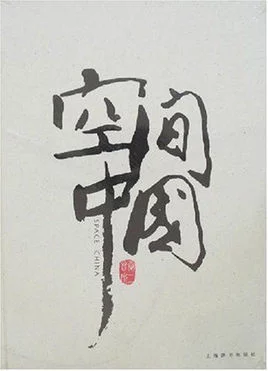 空间
中國
SPACE CHINA
上海辞书出版社